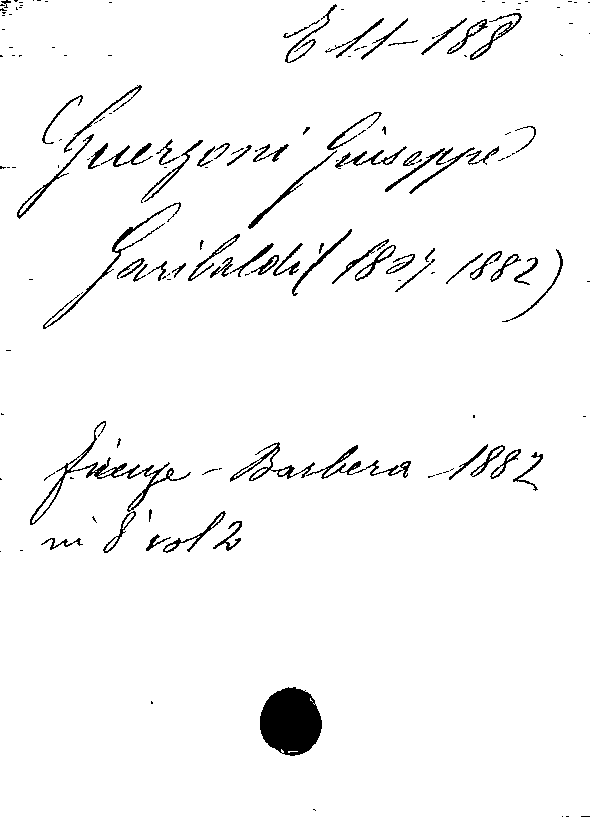 E 11-188
Guerzoni Giuseppe
Garibaldi (1807-1882)
Firenze - Barbera - 1882
in 8° vol 2